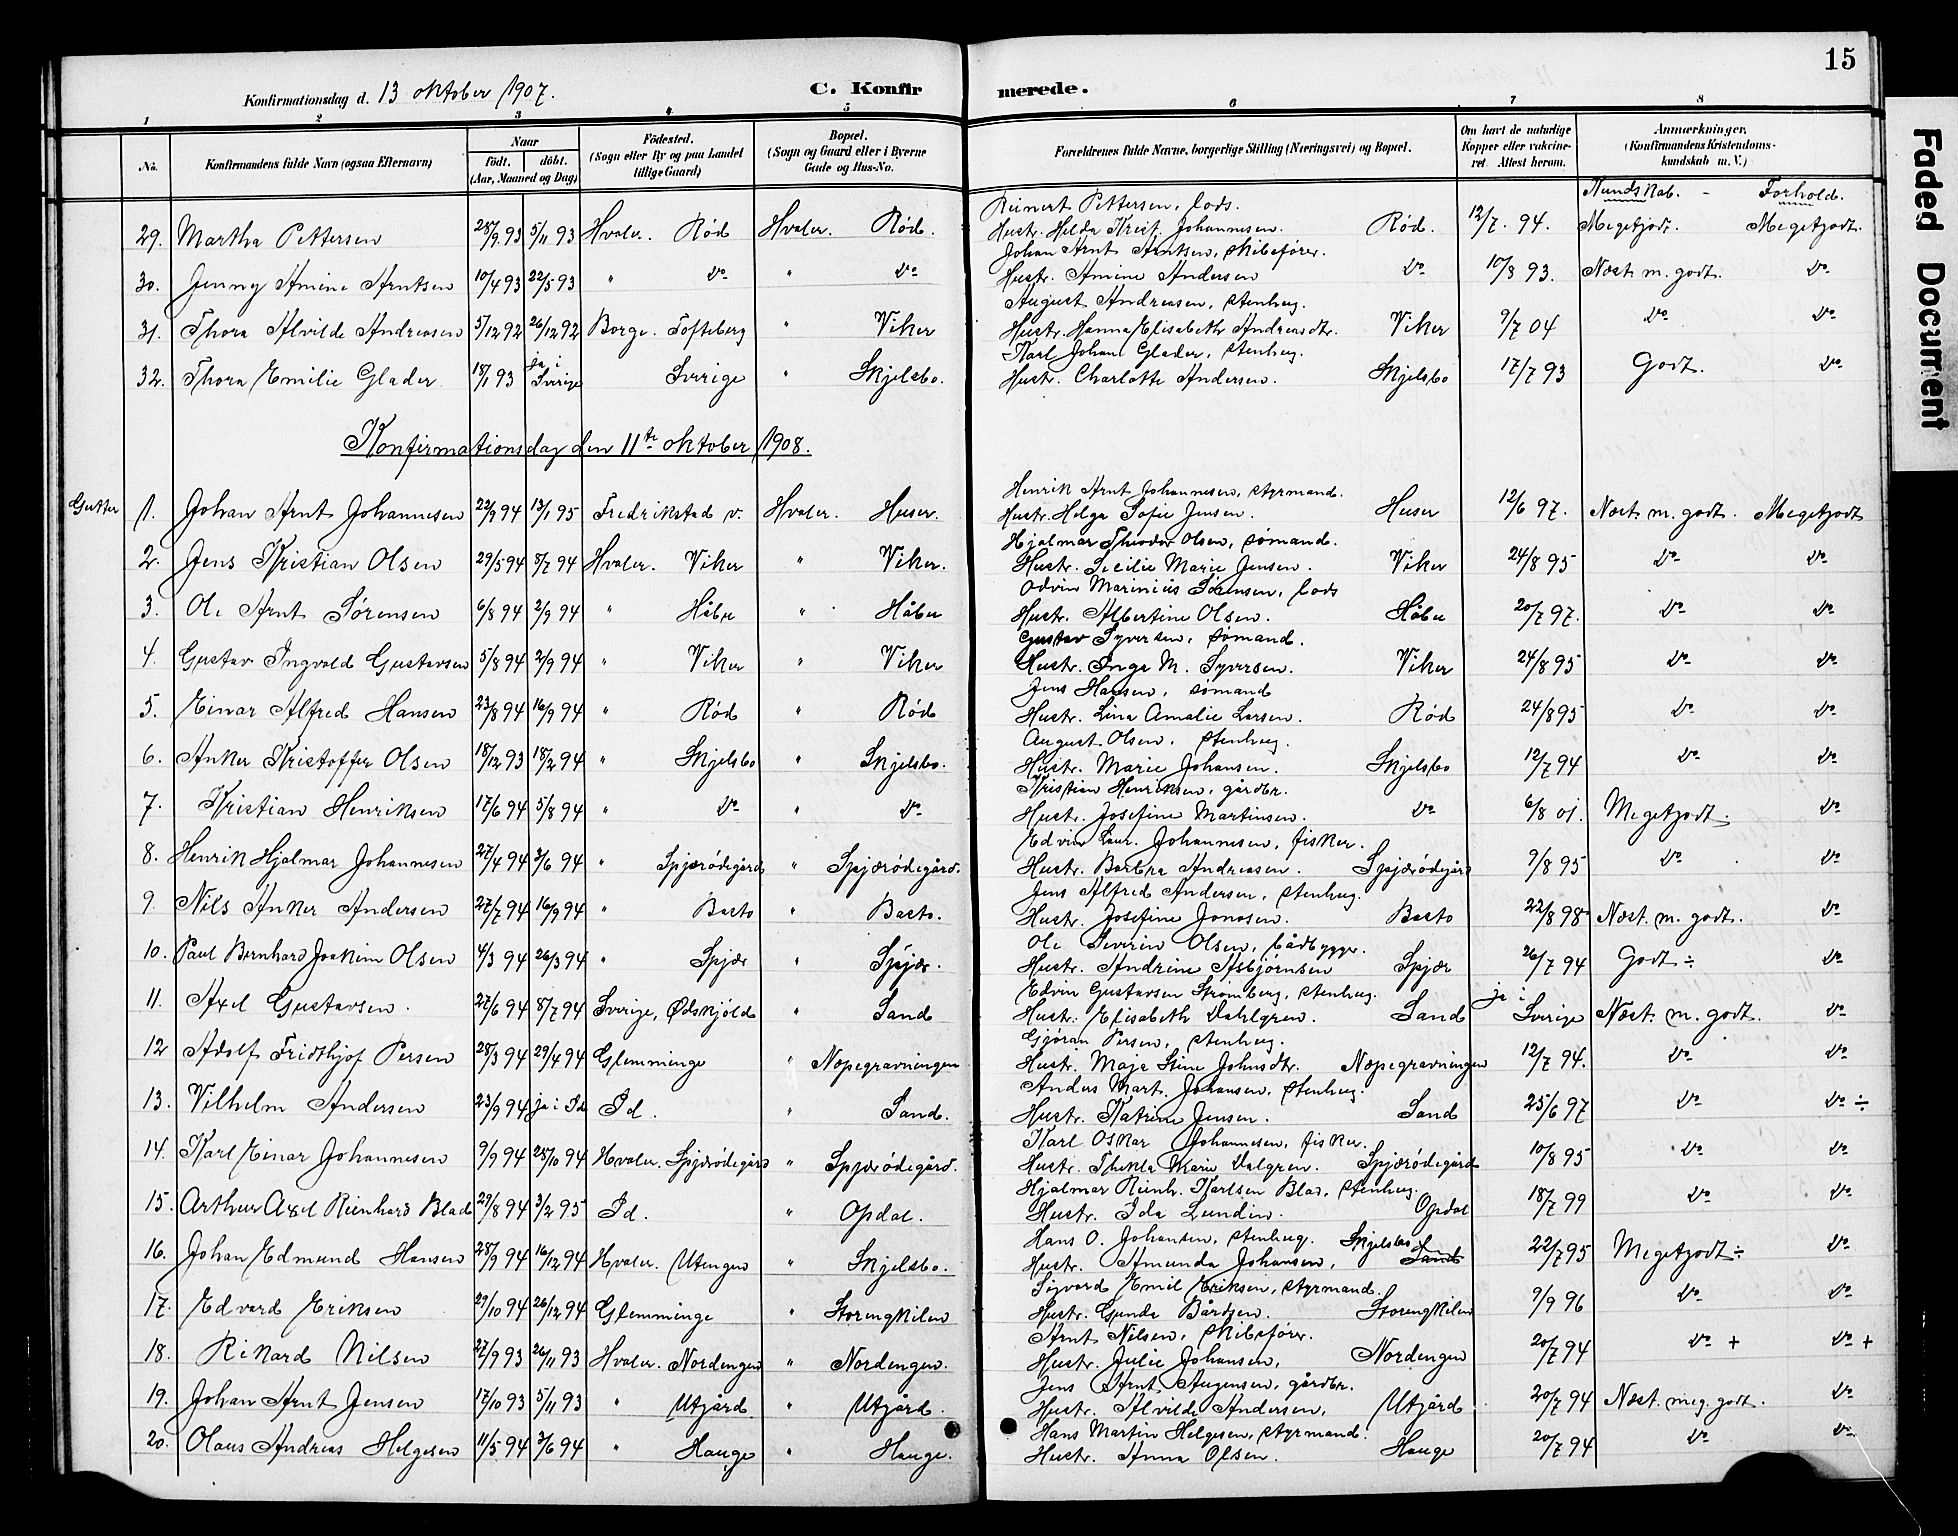 15
Konfirmationsdag d. 13 oktober 1907. C. Konfirmerede.
1 2 3 4 5 6 7 8
No. Konfirmandens fulde Navn (ogsaa Efternavn) Naar født. døbt. (Aar, Maaned og Dag) Fødested. (Sogn eller By og paa Landet tillige Gaard) Bopæl. (Sogn og Gaard eller i Byerne Gade og Hus-No. Forældrenes fulde Navne, borgerlige Stilling (Næringsvei) og Bopæl. Om havt de naturlige Kopper eller vaccineret. Attest herom. Anmærkninger. (Konfirmandens Kristendomskundskab m. V.)
Kundskab. - Forhold.
Reinert Pettersen, lods.
29. Martha Pettersen 28/9 93 5/11 93 Hvaler. Rød Hvaler. Rød. Hustr. Hilda Krist. Johannesen. Rød. 12/7. 94. Megetgodt. Megetgodt.
Johan Arnt Arntsen, skibsfører.
30. Jenny Amine Arntsen 10/4 93 22/5 93 " do " do Hustr. Amine Andersen do 10/8 93. Næst m. godt. do
August Andreasen, stenhug.
31. Thora Alvilde Andreasen 5/12 92 26/12 92 Borge. Tofteberg " Viker Hustr. Hanna Elisabeth Andreasdtr. Viker 9/7 04 do do
Karl Johan Glader, stenhug.
32. Thora Emilie Glader 18/1 93 ja i Sverige Sverige " Skjelsbo. Hustr. Charlotte Andersen. Skjelsbo 17/7 93 Godt. do
Konfirmationsdag den 11te oktober 1908.
Henrik Arnt Johannesen, styrmand.
Gutter 1. Johan Arnt Johannesen 22/9 94 13/1 95 Fredrikstad v. Hvaler. Huser. Hustr. Helga Sofie Jensen. Huser 12/6 97. Næst m. godt. Megetgodt
Hjalmar Theodor Olsen, sømand.
2. Jens Kristian Olsen 29/5 94 8/7 94 Hvaler. Viker " Viker. Hustr. Cecilie Marie Jensen. Viker 24/8 95 do do
Odvin Marinius Sørensen, lods
3. Ole Arnt Sørensen 6/8 94 2/9 94 " Håbu " Håbu Hustr. Albertine Olsen. Håbu 20/7 97. do do
Gustav Syversen, sømand.
4. Gustav Ingvald Gustavsen 5/8 94 2/9 94 " Viker " Viker Hustr. Inga M. Syversen. Viker 24/8 95 do do
Jens Hansen, sømand
5. Einar Alfred Hansen 23/8 94 16/9 94 " Rød " Rød Hustr. Lina Amalie Larsen. Rød 24/8 95 do do
August Olsen, stenhug.
6. Anker Kristoffer Olsen 18/12 93 18/2 94 " Skjelsbo " Skjelsbo. Hustr. Marie Johansen. Skjelsbo 12/7 94 do do
Kristian Henriksen, gårdbr.
7. Kristian Henriksen 17/6 94 5/8 94 " do " do Hustr. Josefine Martinsen. do 6/8 01. Megetgodt. do
Edvin Laur. Johannesen, fisker.
8. Henrik Hjalmar Johannesen 27/4 94 3/6 94 " Spjærødegård " Spjærødegård. Hustr. Barbra Andreasen. Spjærødegård 9/8 95 do do
Jens Alfred Andersen, stenhug.
9. Nils Anker Andersen 27/7 94 16/9 94 " Basto " Basto. Hustr. Josefine Jonasen. Basto 22/8 98 Næst. m. godt. do
Ole Severin Olsen, bådbygger.
10. Paul Bernhard Joakim Olsen 4/3 94 26/3 94 " Spjær " Spjær. Hustr. Andrine Asbjørnsen Spjær 26/7 94 Godt ÷ do
Edvin Gustavsen Strømberg, stenhug.
11. Axel Gustavsen. 27/6 94 8/7 94 Sverige, Ødskjöld " Sand Hustr. Elisabeth Dahlgren. Sand ja i Sverige Næst. m. godt. do
Gjøran Persen, stenhug.
12 Adolf Fridthjof Persen 28/3 94 29/4 94 Glemminge " Næpegravningen Hustr. Maja Stine Johnsdtr. Næpegravningen 12/7 94. do do
Anders Mart. Johansen, stenhug.
13. Vilhelm Andersen 23/9 94 ja i Id Id. " Sand. Hustr. Katrine Jensen. Sand 25/6 97 do do ÷
Karl Oskar Johannesen, fisker.
14. Karl Einar Johannesen 9/9 94 28/10 94 Hvaler. Spjærødegård " Spjærødegård. Hustr. Thekla Marie Dalgren. Spjærødegård 10/8 95 do do
Hjalmar Reinh. Karlsen Blad, stenhug.
15. Arthur Axel Reinhard Blad 29/8 94 3/2 95 Id. " Opdal. Hustr. Ida Lundin. Opdal 18/7 99 do do
Hans O. Johansen, stenhug. Skjelsbo
16. Johan Edmund Hansen 28/9 94 16/12 94 Hvaler. Utengen " Skjelsbo. Hustr. Amunda Johansen, Sand 22/7 95 Megetgodt ÷ do
Sigvard Emil Eriksen, styrmand.
17. Edvard Eriksen 29/10 94 26/12 94 Glemminge " Storengkilen Hustr. Gunda Bårdsen. Storengkilen 9/9 96 do do
Arnt Nilsen, skibsfører.
18. Rikard Nilsen 27/9 93 26/11 93 Hvaler. Nordengen " Nordengen. Hustr. Julie Johansen, Nordengen 20/7 94 do + do +
Jens Arnt Augensen, gårdbr.
19. Johan Arnt Jensen 17/10 93 5/11 93 " Utgård " Utgård. Hustr. Alvilde Andersen, Utgård 20/7 94 Næst. meg. godt. do
Hans Martin Helgesen, styrmand.
20. Olaus Andreas Helgesen 11/5 94 3/6 94 " Hauge " Hauge. Hustr. Anna Olsen. Hauge 20/7 94 do do
Faded Document